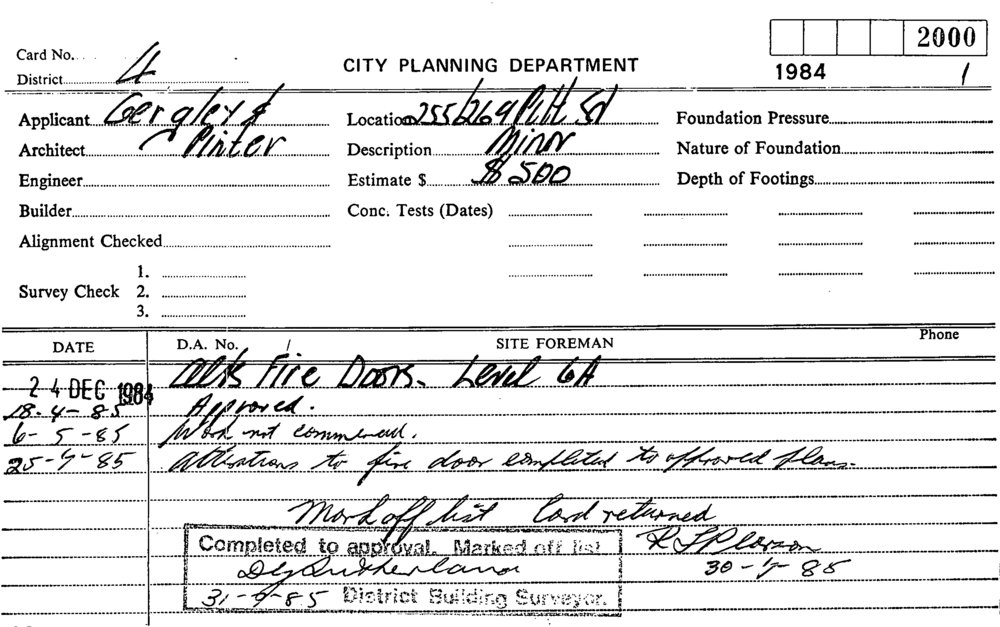 2000
Card No.
District 4
CITY PLANNING DEPARTMENT
1984 1
Applicant Gergley &
Location 255/269 Pitt St
Foundation Pressure
Architect Pinter
Description Minor
Nature of Foundation
Engineer
Estimate $ $500
Depth of Footings
Builder
Conc. Tests (Dates)
Alignment Checked
1.
Survey Check 2.
3.
DATE D.A. No. / SITE FOREMAN Phone
24 DEC 1984 Alts Fire Doors. Level 6A
18-4-85 Approved.
6-5-85 Work not commenced.
25-7-85 Alterations to fire door completed to approved plans.
Mark off list Card returned
Completed to approval. Marked off list
R Pearson
30-7-85
Sutherland
31-7-85 District Building Surveyor.